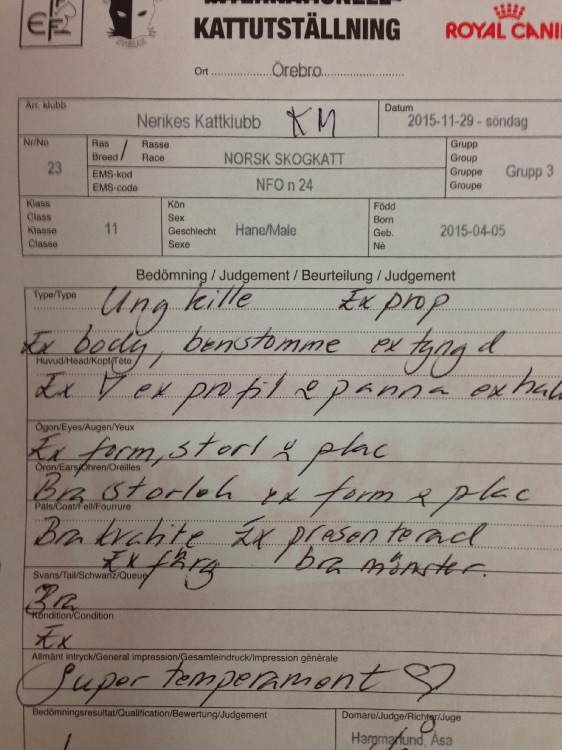 INTERNATIONELL
KATTUTSTÄLLNING
ROYAL CANI
Ort Örebro
Arr. klubb
Nerikes Kattklubb KM
Datum
2015-11-29 - söndag
Nr/No
23
Ras Rasse
Breed Race
NORSK SKOGKATT
EMS-kod
EMS-code
NFO n 24
Grupp
Group
Gruppe
Groupe
Grupp 3
Klass
Class
Klasse
Classe
11
Kön
Sex
Geschlecht
Sexe
Hane/Male
Född
Born
Geb.
Né
2015-04-05
Bedömning / Judgement / Beurteilung / Judgement
Type/Type
Ung kille Ex prop
Ex body, benstomme ex tyngd
Huvud/Head/Kopf/Tête
Ex ex profil & panna ex hak
Ögon/Eyes/Augen/Yeux
Ex form, storl & plac
Öron/Ears/Ohren/Oreilles
Bra storlek ex form & plac
Päls/Coat/Fell/Fourrure
Bra kvalite Ex presenterad
Ex färg bra mönster.
Svans/Tail/Schwanz/Queue
Bra
Kondition/Condition
Ex
Allmänt intryck/General impression/Gesamteindruck/Impression générale
Super temperament
Bedömningsresultat/Qualification/Bewertung/Judgement
Domare/Judge/Richter/Juge
Hammarlund, Åsa